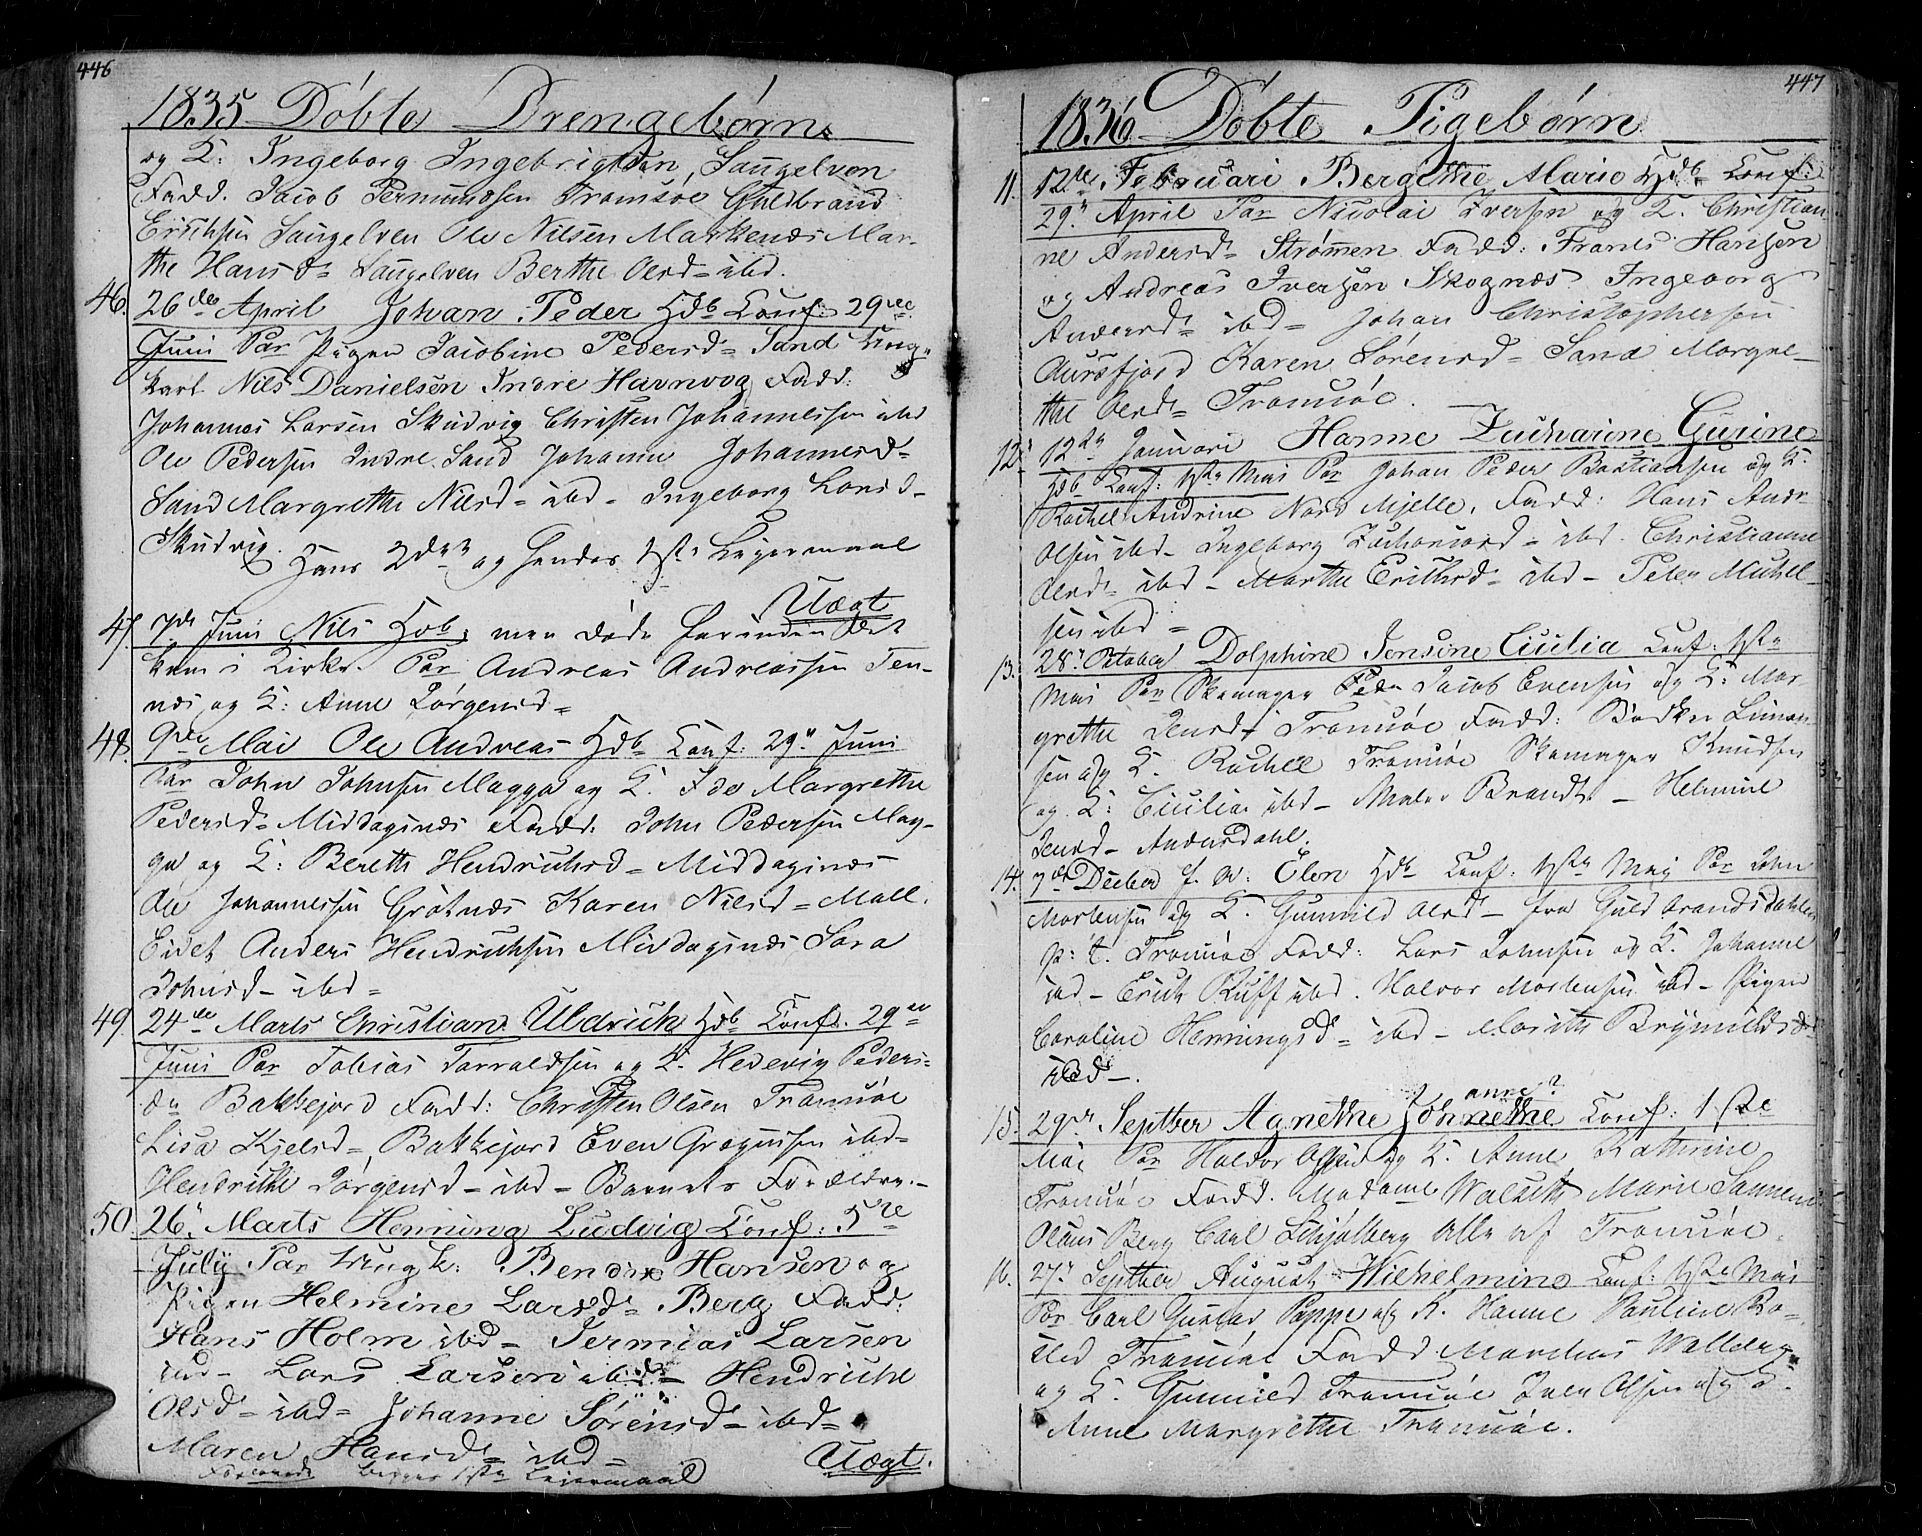 446
1835 Döbte Drengebørn
og K: Ingeborg Ingebrigtsen, Laugelven
Fadd. Jacob Permundsen Tromsöe Guldbrand
Erichsen Laugelven Ole Nilsen Markenæs Mar-
the Hansd= Laugelven Berthe Olsd= ibd.
46. 26de April Johan Peder Hdb Conf: 29de
Juni Par Pigen Jacobine Pedersd= Sand Ung-
karl Nils Danielsen Indre Havnvog Fadd:
Johannes Larsen Skudvig Christen Johannessen ibd
Ole Pedersen Indre Sand Johanne Johannesd=
Sand Margrethe Nilsd= ibd- Ingeborg Larsd-
Skudvig. Hans 2det og hendes 1ste Leiermaal
Uægt
47. 7de Juni Nils Hdb, men døde forinden det
kom i Kirke. Par Andreas Andreassen Ten-
næs og K: Anne Jörgensd=
48. 9de Mai Ole Andreas Hdb Conf: 29de Juni
Par John Johnsen Magga og K. Ide Margrethe
Pedersd= Middagsnæs Fadd: John Pedersen Mag-
ga og K: Bereth Hendrichsd= Middagsnæs
Ole Johannessen Grötnæs Karen Nilsd= Mall.
Eidet Anders Hendrichsen Middagsnæs Sara
Johnsd- ibd=
49. 24de Marts Christian Uldrich Hdb Conf. 29de
Juni Par Tobias Torraldsen og K. Hedevig Peders-
da Bakkejord Fadd: Christen Olsen Tromsöe
Lisa Kjelsd= Bakkejord Even Gregusen ibd=
Hendrikke Jörgensd- ibd- Barnets Forældre.-
50. 26. Marts Henning Ludvig Conf: 5te
July Par Ungk: Bendix Hansen og
Pigen Helmine Larsd= Berg Fadd:
Hans Holm ibd- Jermias Larsen
ibd- Lars Larsen ibd- Hendriche
Olsd= ibd= Johanne Sörensd= ibd=
Maren Hansd= ibd=
Uægt.
Forældrenes begges 1ste Leiermaal
447
1836 Döbte Pigebørn
11. 12te Februari Bergethe Marie Hdb Conf:
29de April Par Nicolai Iversen og K. Christian
ne Andersd= Strømen Fadd: Frants Hansen
og Andreas Iversen Skognæs Ingeborg
Andersd= ibd= Johan Christophersen
Aursfjord Karen Sörensd= Sand Margre-
the Olsd= Tromsöe.
12. 12te Januari Hanne Zacharine Gurine
Hdb Conf: 1ste Mai Par Johan Peder Bastiansen og K.
Rachel Andrine Nord Mjelle. Fadd: Hans Andr
Olsen ibd- Ingeborg Zachariasd= ibd. Christianne
Olsd= ibd- Marthe Erichsd= ibd- Peter Michel-
sen ibd=
13. 28de October Dolphine Jensine Cicilia Conf: 1ste
Mai Par Skomager Peder Jacob Evensen og K: Mar
grethe Jensd= Tromsöe Fadd: Bødker Simon-
sen og K. Rachel Tromsöe Skomager Knudsen
og K: Cicilia ibd- Maler Brandt- Helmine
Jensd- Andersdahl.
14. 7de Decber f. A: Elen Hdb Conf: 1ste Maj Par John
Mortensen og K. Gunnild Olsd- fra Guldbrandsdahlen
p: t. Tromsöe Fadd: Lars Johnsen og K. Johanne
ibd- Erich Ruff ibd. Halvor Mortensen ibd- Pigen
Caroline Henningsd= ibd- Marith Brynildsd
ibd-.
anne?
15. 29de Septber Agnethe Johnethe Conf: 1ste
Mai Par Haldor Olsen og K. Anne Kathrine
Tromsöe Fadd. Madame Walseth Marie Sannes
Olaus Berg Carl Schjølberg alle af Tromsöe.
16. 27de Septber August Wilhelmine Conf: 1ste Mai
Par Carl Gustav Poppe og K. Hanne Pauline Bo-
sted Tromsöe Fadd Mordius Wallberg
og K. Gunnild Tromsöe Iver Olsen og K.
Anne Margrethe Tromsöe.